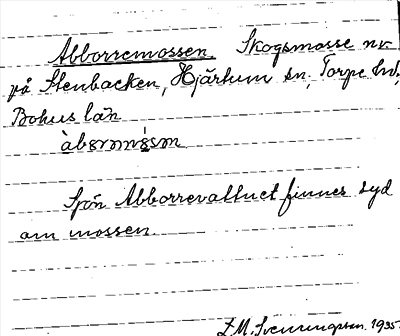 Abborremossen. Skogsmosse nv.
på Stenbacken, Hjärtum sn, Torpe hd,
Bohus län
àbɷrmɷ́sɷn
Sjön Abborrevattnet finnes syd
om mossen.
F.M. Svenningson. 1935